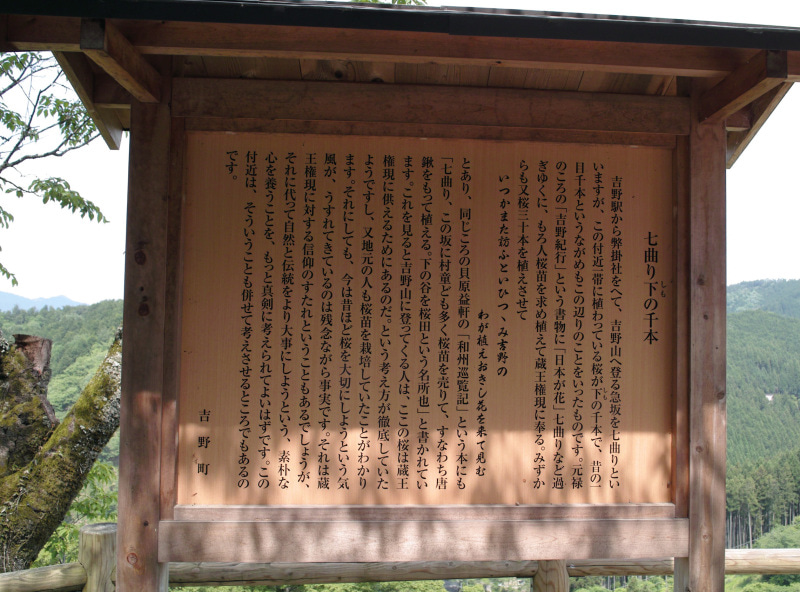 七曲り下の千本
しも
吉野駅から幣掛社をへて、吉野山へ登る急坂を七曲りとい
いますが、この付近一帯に植わっている桜が下の千本で、昔の一
しも
目千本というながめもこの辺りのことをいったものです。元禄
のころの「吉野紀行」という書物に「日本が花」七曲りなど過
ぎゆくに、もろ人桜苗を求め植えて蔵王権現に奉る。みずか
らも又桜三十本を植えさせて
いつかまた訪ふといひつゝみ吉野の
わが植えおきし花を来て見む
とあり、同じころの貝原益軒の「和州巡覧記」という本にも
「七曲り、この坂に村童ども多く桜苗を売りて、すなわち唐
鍬をもって植える。下の谷を桜田という名所也」と書かれてい
ます。これを見ると吉野山に登ってくる人は、ここの桜は蔵王
権現に供えるためにあるのだ。という考え方が徹底していた
ようですし、又地元の人も桜苗を栽培していたことがわかり
ます。それにしても、今は昔ほど桜を大切にしようという気
風が、うすれてきているのは残念ながら事実です。それは蔵
王権現に対する信仰のすたれということもあるでしょうが、
それに代って自然と伝統をより大事にしようという、素朴な
心を養うことを、もっと真剣に考えられてよいはずです。この
付近は、そういうことも併せて考えさせるところでもあるの
です。
吉野町